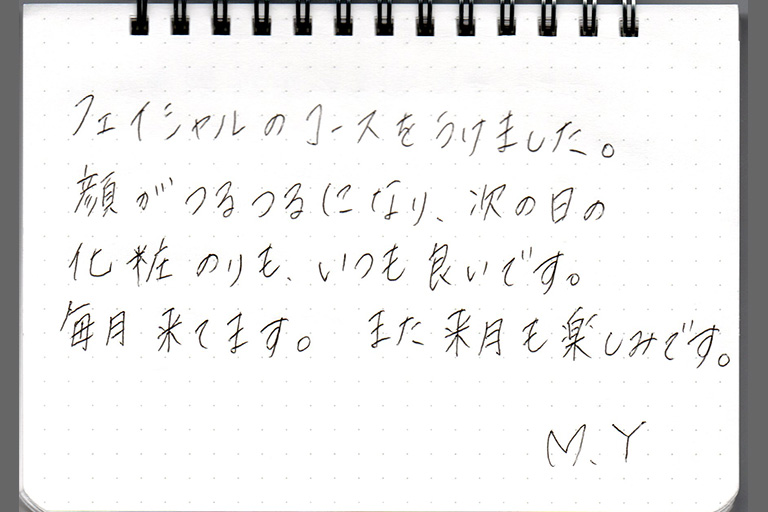 フェイシャルのコースをうけました。
顔がつるつるになり、次の日の
化粧のりも、いつも良いです。
毎月来てます。 また来月も楽しみです。
M.Y